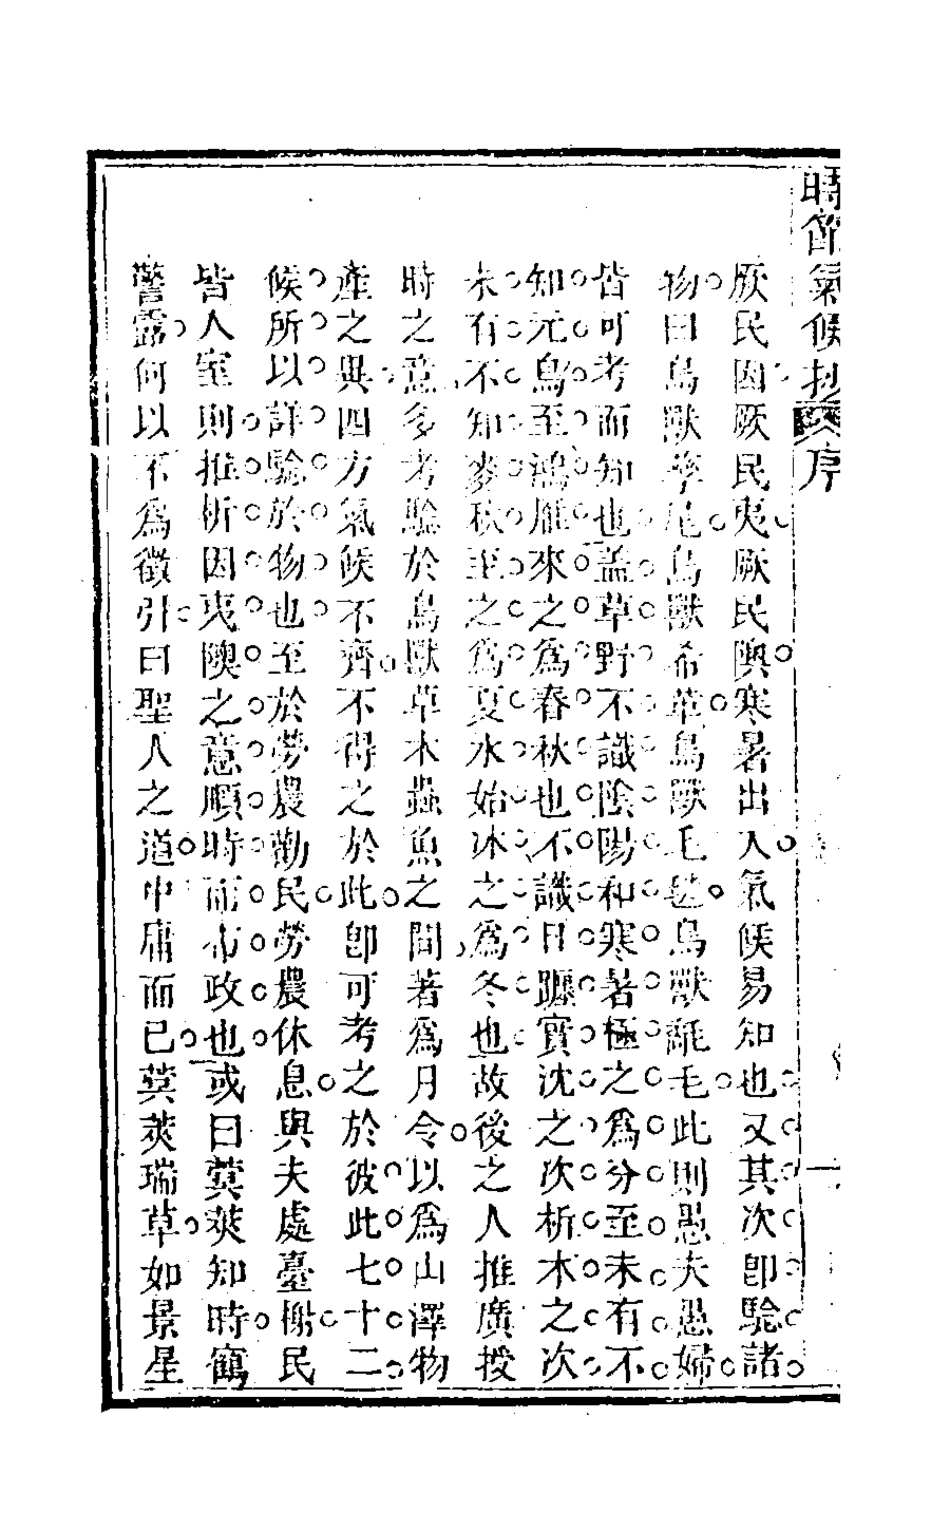 時節氣候抄 序
厥民因厥民夷厥民隩寒暑出入氣候易知也又其次卽驗諸
物曰鳥獸孳尾鳥獸希革鳥獸毛毨鳥獸氄毛此則愚夫愚婦
皆可考而知也蓋草野不識陰陽和寒暑極之爲分至未有不
知元鳥至鴻雁來之爲春秋也不識日躔實沈之次析木之次
未有不知麥秋至之爲夏水始冰之爲冬也故後之人推廣授
時之意多考驗於鳥獸草木蟲魚之間著爲月令以爲山澤物
產之與四方氣候不齊不得之於此卽可考之於彼此七十二
候所以詳驗於物也至於勞農勸民勞農休息與夫處臺榭民
皆入室則推析因夷隩之意順時而布政也或曰蓂莢知時鶴
警露何以不爲徵引曰聖人之道中庸而已蓂莢瑞草如景星